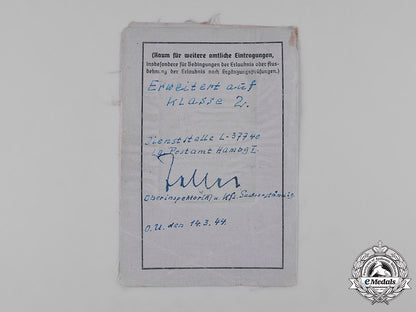 (Raum für weitere amtliche Eintragungen,
insbesondere für Bedingungen der Erlaubnis oder Aus-
dehnung der Erlaubnis nach Ergänzungsprüfungen.)
Erweitert auf
Klasse 2.
Dienststelle L-37740
Lg. Postamt Hambg 1.
Oberinspektor(K) u. Kfz. Sachverständig
O.U. den 14.3.44.
eMedals